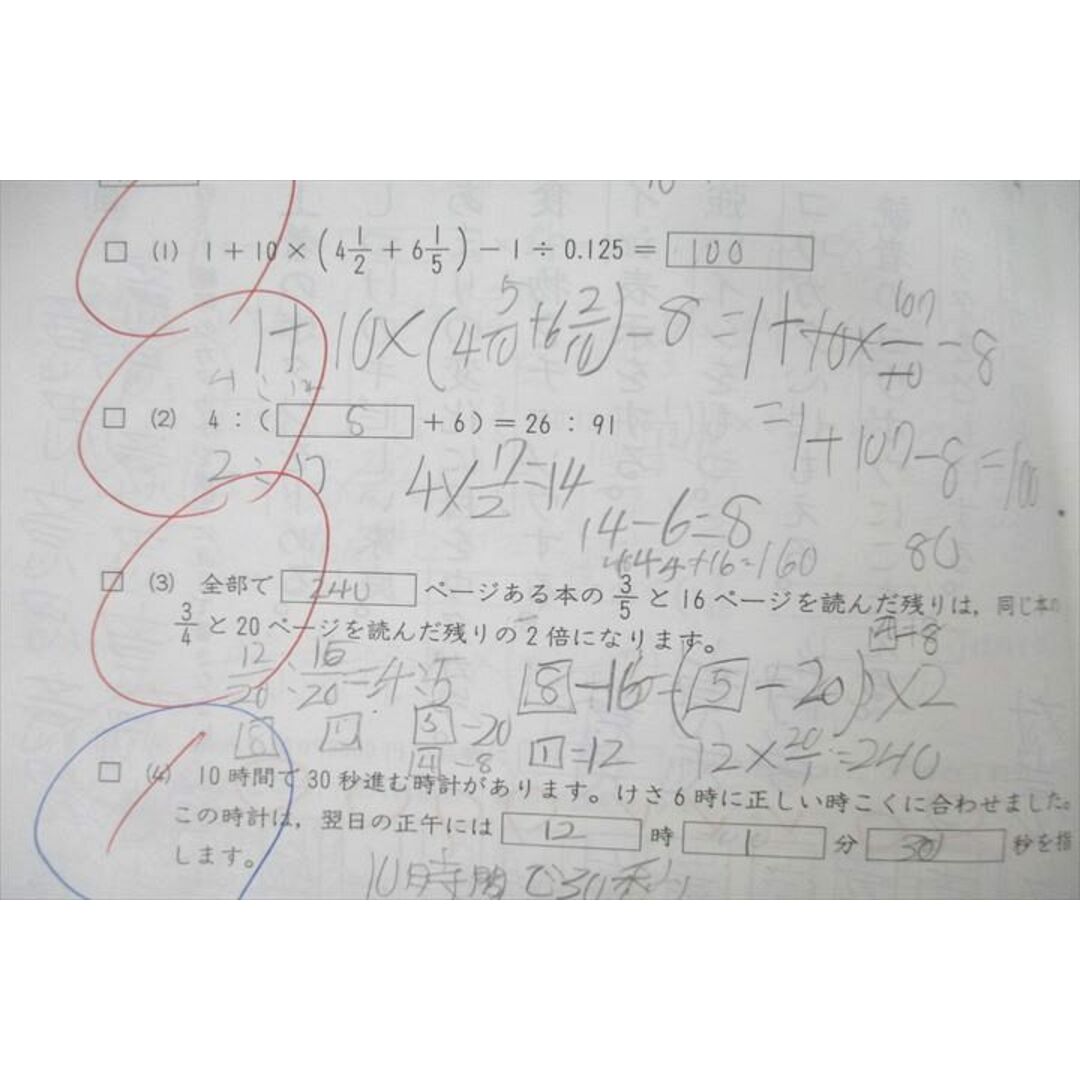 □ (1) 1 + 10 × (4 1/2 + 6 1/5) − 1 ÷ 0.125 = 100
1 + 10 × (4 5/10 + 6 2/10) − 8 = 1 + 10 × 107/10 − 8
= 1 + 107 − 8 = 100
□ (2) 4 : ( 8 + 6) = 26 : 91
4 × 7/2 = 14
14 − 6 = 8
80
+16=160
□ (3) 全部で 240 ページある本の 3/5 と 16 ページを読んだ残りは, 同じ本の
3/4 と 20 ページを読んだ残りの 2 倍になります。
4 = 8
12/20 : 15/20 = 4 : 5
8 − 16 = (5 − 20) × 2
8 1 5 − 20
4 − 8
1 = 12
12 × 20/1 = 240
□ (4) 10 時間で 30 秒進む時計があります。けさ 6 時に正しい時こくに合わせました。
この時計は, 翌日の正午には 12 時 1 分 30 秒を指
します。
10時間で30秒